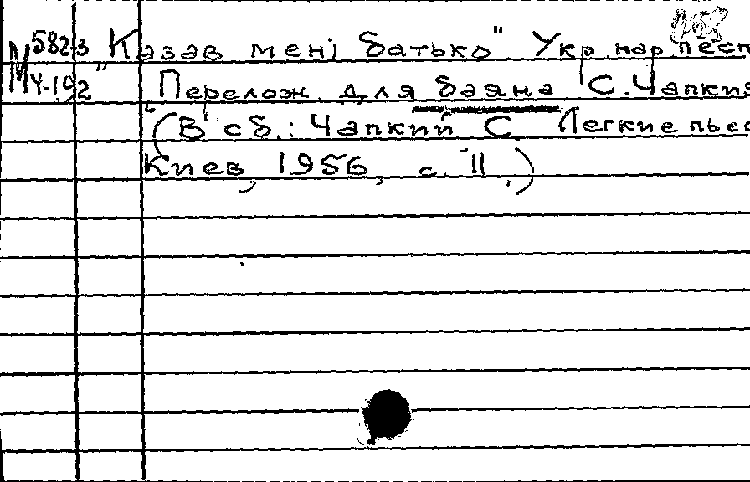 М 582-3 "Казав мені батько" Укр. нар. песн
Ч-192 Перелож. для баяна С. Чапкия
(В сб.: Чапкий С. Легкие пьес
Киев, 1956, с. 11.)